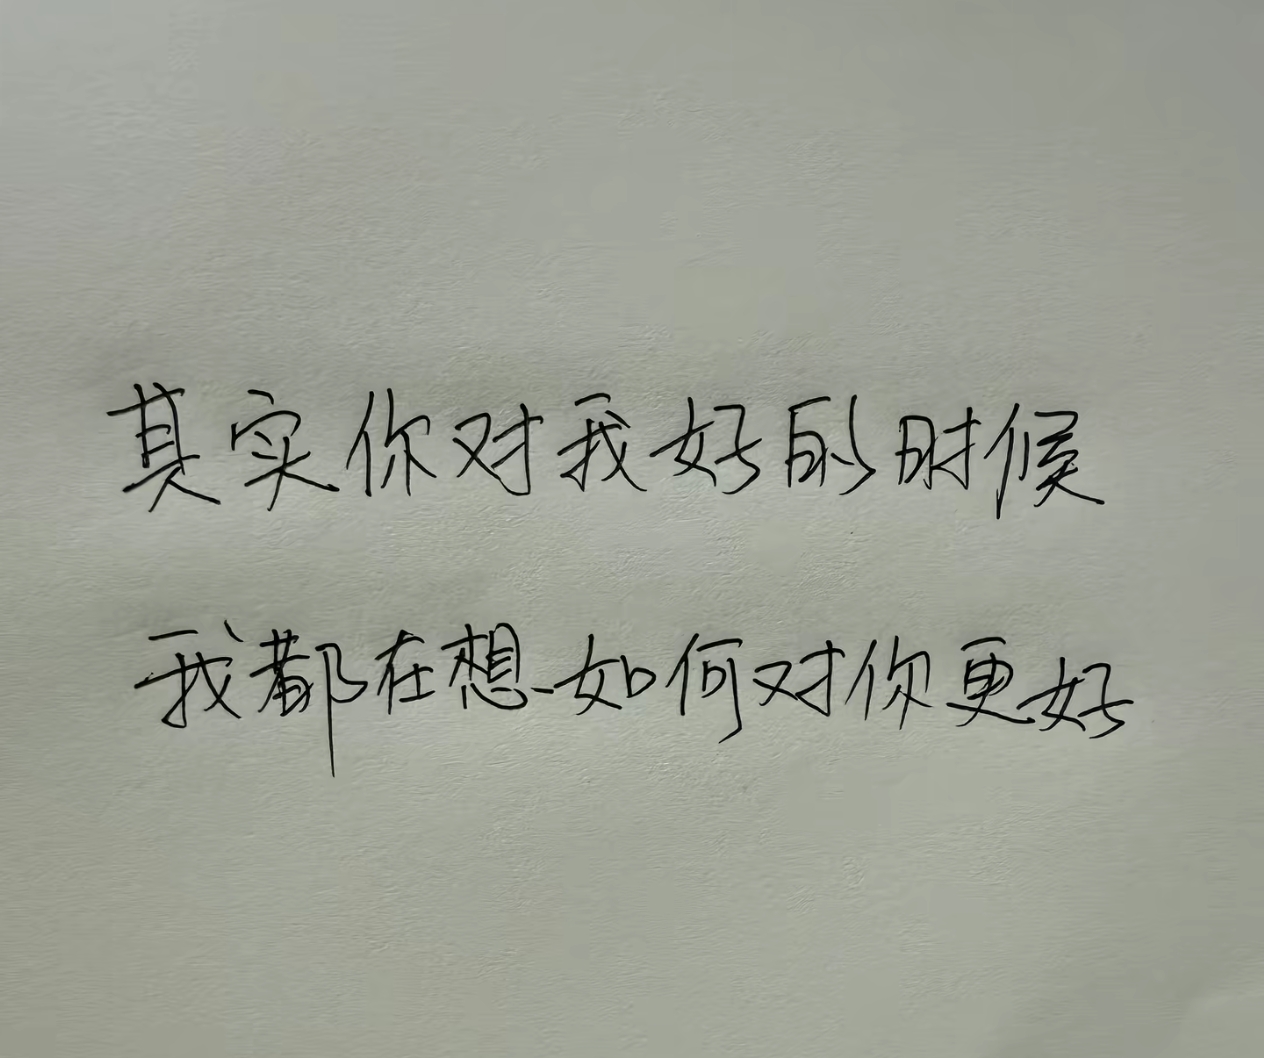 其实你对我好的时候
我都在想如何对你更好